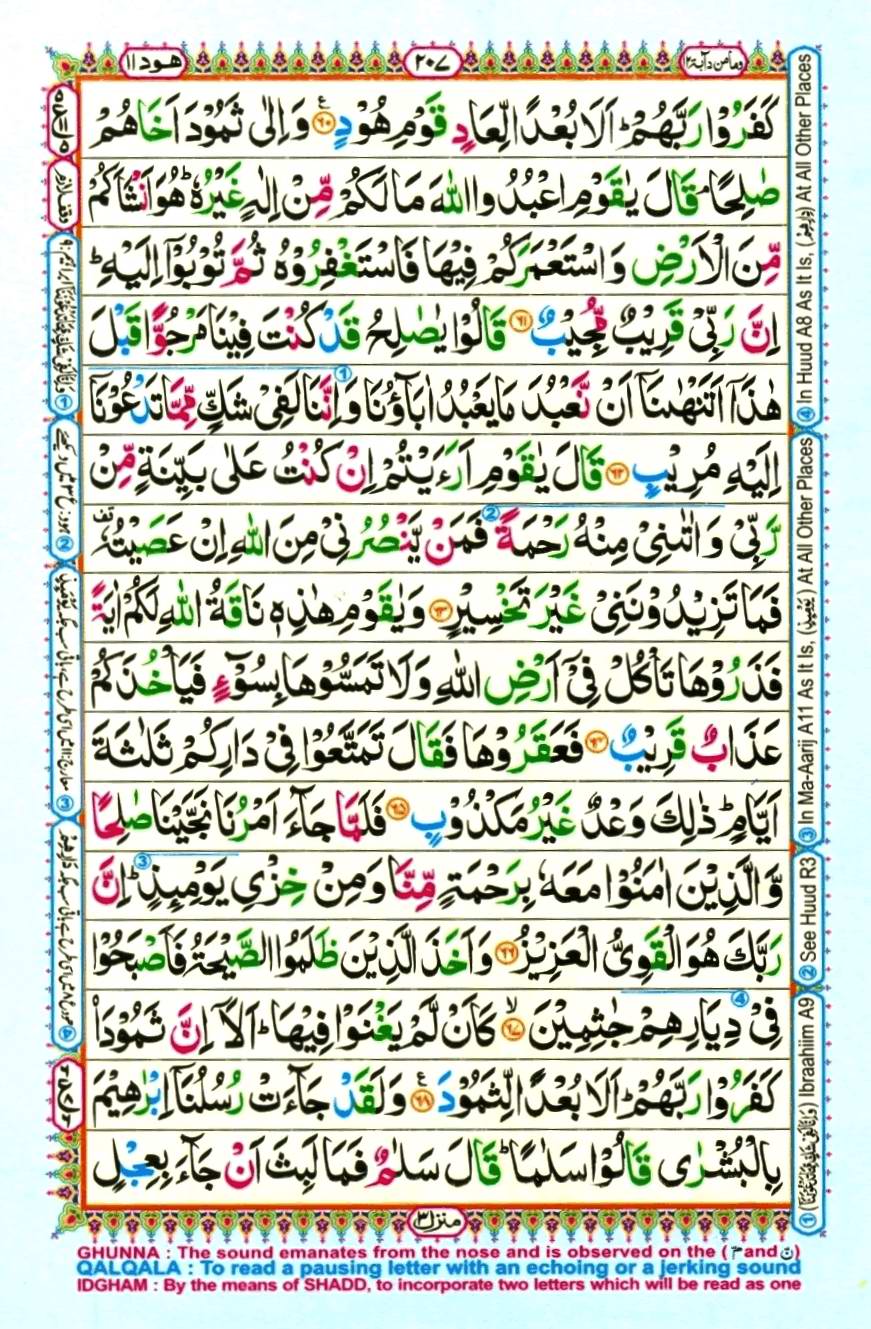 ومامن دآبة ١٢
٢٠٧
هود ١١
كَفَرُوْا رَبَّهُمْ ؕ اَلَا بُعْدًا لِّعَادٍ قَوْمِ هُوْدٍ ﴿۶۰﴾ وَ اِلٰى ثَمُوْدَ اَخَاهُمْ
صٰلِحًا ۘ قَالَ يٰقَوْمِ اعْبُدُوا اللّٰهَ مَا لَكُمْ مِّنْ اِلٰهٍ غَيْرُهٗ ؕ هُوَ اَنْشَاَكُمْ
مِّنَ الْاَرْضِ وَ اسْتَعْمَرَكُمْ فِيْهَا فَاسْتَغْفِرُوْهُ ثُمَّ تُوْبُوْۤا اِلَيْهِ ؕ
اِنَّ رَبِّىْ قَرِيْبٌ مُّجِيْبٌ ﴿۶۱﴾ قَالُوْا يٰصٰلِحُ قَدْ كُنْتَ فِيْنَا مَرْجُوًّا قَبْلَ
هٰذَاۤ اَتَنْهٰىنَاۤ اَنْ نَّعْبُدَ مَا يَعْبُدُ اٰبَآؤُنَا وَ اِنَّنَا لَفِىْ شَكٍّ مِّمَّا تَدْعُوْنَاۤ
اِلَيْهِ مُرِيْبٍ ﴿۶۲﴾ قَالَ يٰقَوْمِ اَرَءَيْتُمْ اِنْ كُنْتُ عَلٰى بَيِّنَةٍ مِّنْ
رَّبِّىْ وَ اٰتٰىنِىْ مِنْهُ رَحْمَةً فَمَنْ يَّنْصُرُنِىْ مِنَ اللّٰهِ اِنْ عَصَيْتُهٗ
فَمَا تَزِيْدُوْنَنِىْ غَيْرَ تَخْسِيْرٍ ﴿۶۳﴾ وَ يٰقَوْمِ هٰذِهٖ نَاقَةُ اللّٰهِ لَكُمْ اٰيَةً
فَذَرُوْهَا تَاْكُلْ فِىْۤ اَرْضِ اللّٰهِ وَ لَا تَمَسُّوْهَا بِسُوْٓءٍ فَيَاْخُذَكُمْ
عَذَابٌ قَرِيْبٌ ﴿۶۴﴾ فَعَقَرُوْهَا فَقَالَ تَمَتَّعُوْا فِىْ دَارِكُمْ ثَلٰثَةَ
اَيَّامٍ ؕ ذٰلِكَ وَعْدٌ غَيْرُ مَكْذُوْبٍ ﴿۶۵﴾ فَلَمَّا جَآءَ اَمْرُنَا نَجَّيْنَا صٰلِحًا
وَّ الَّذِيْنَ اٰمَنُوْا مَعَهٗ بِرَحْمَةٍ مِّنَّا وَ مِنْ خِزْىِ يَوْمِئِذٍ ؕ اِنَّ
رَبَّكَ هُوَ الْقَوِىُّ الْعَزِيْزُ ﴿۶۶﴾ وَ اَخَذَ الَّذِيْنَ ظَلَمُوا الصَّيْحَةُ فَاَصْبَحُوْا
فِىْ دِيَارِهِمْ جٰثِمِيْنَ ۙ﴿۶۷﴾ كَاَنْ لَّمْ يَغْنَوْا فِيْهَا ؕ اَلَاۤ اِنَّ ثَمُوْدَا۟
كَفَرُوْا رَبَّهُمْ ؕ اَلَا بُعْدًا لِّثَمُوْدَ ﴿۶۸﴾ وَ لَقَدْ جَآءَتْ رُسُلُنَاۤ اِبْرٰهِيْمَ
بِالْبُشْرٰى قَالُوْا سَلٰمًا ؕ قَالَ سَلٰمٌ فَمَا لَبِثَ اَنْ جَآءَ بِعِجْلٍ
منزل ٣
④ In Huud A8 As It Is, At All Other Places
③ In Ma-Aarij A11 As It Is, (يَوْمَئِذٍ) At All Other Places
② See Huud R3
① Ibraahiim A9
GHUNNA : The sound emanates from the nose and is observed on the ( مّ and نّ )
QALQALA : To read a pausing letter with an echoing or a jerking sound
IDGHAM : By the means of SHADD, to incorporate two letters which will be read as one